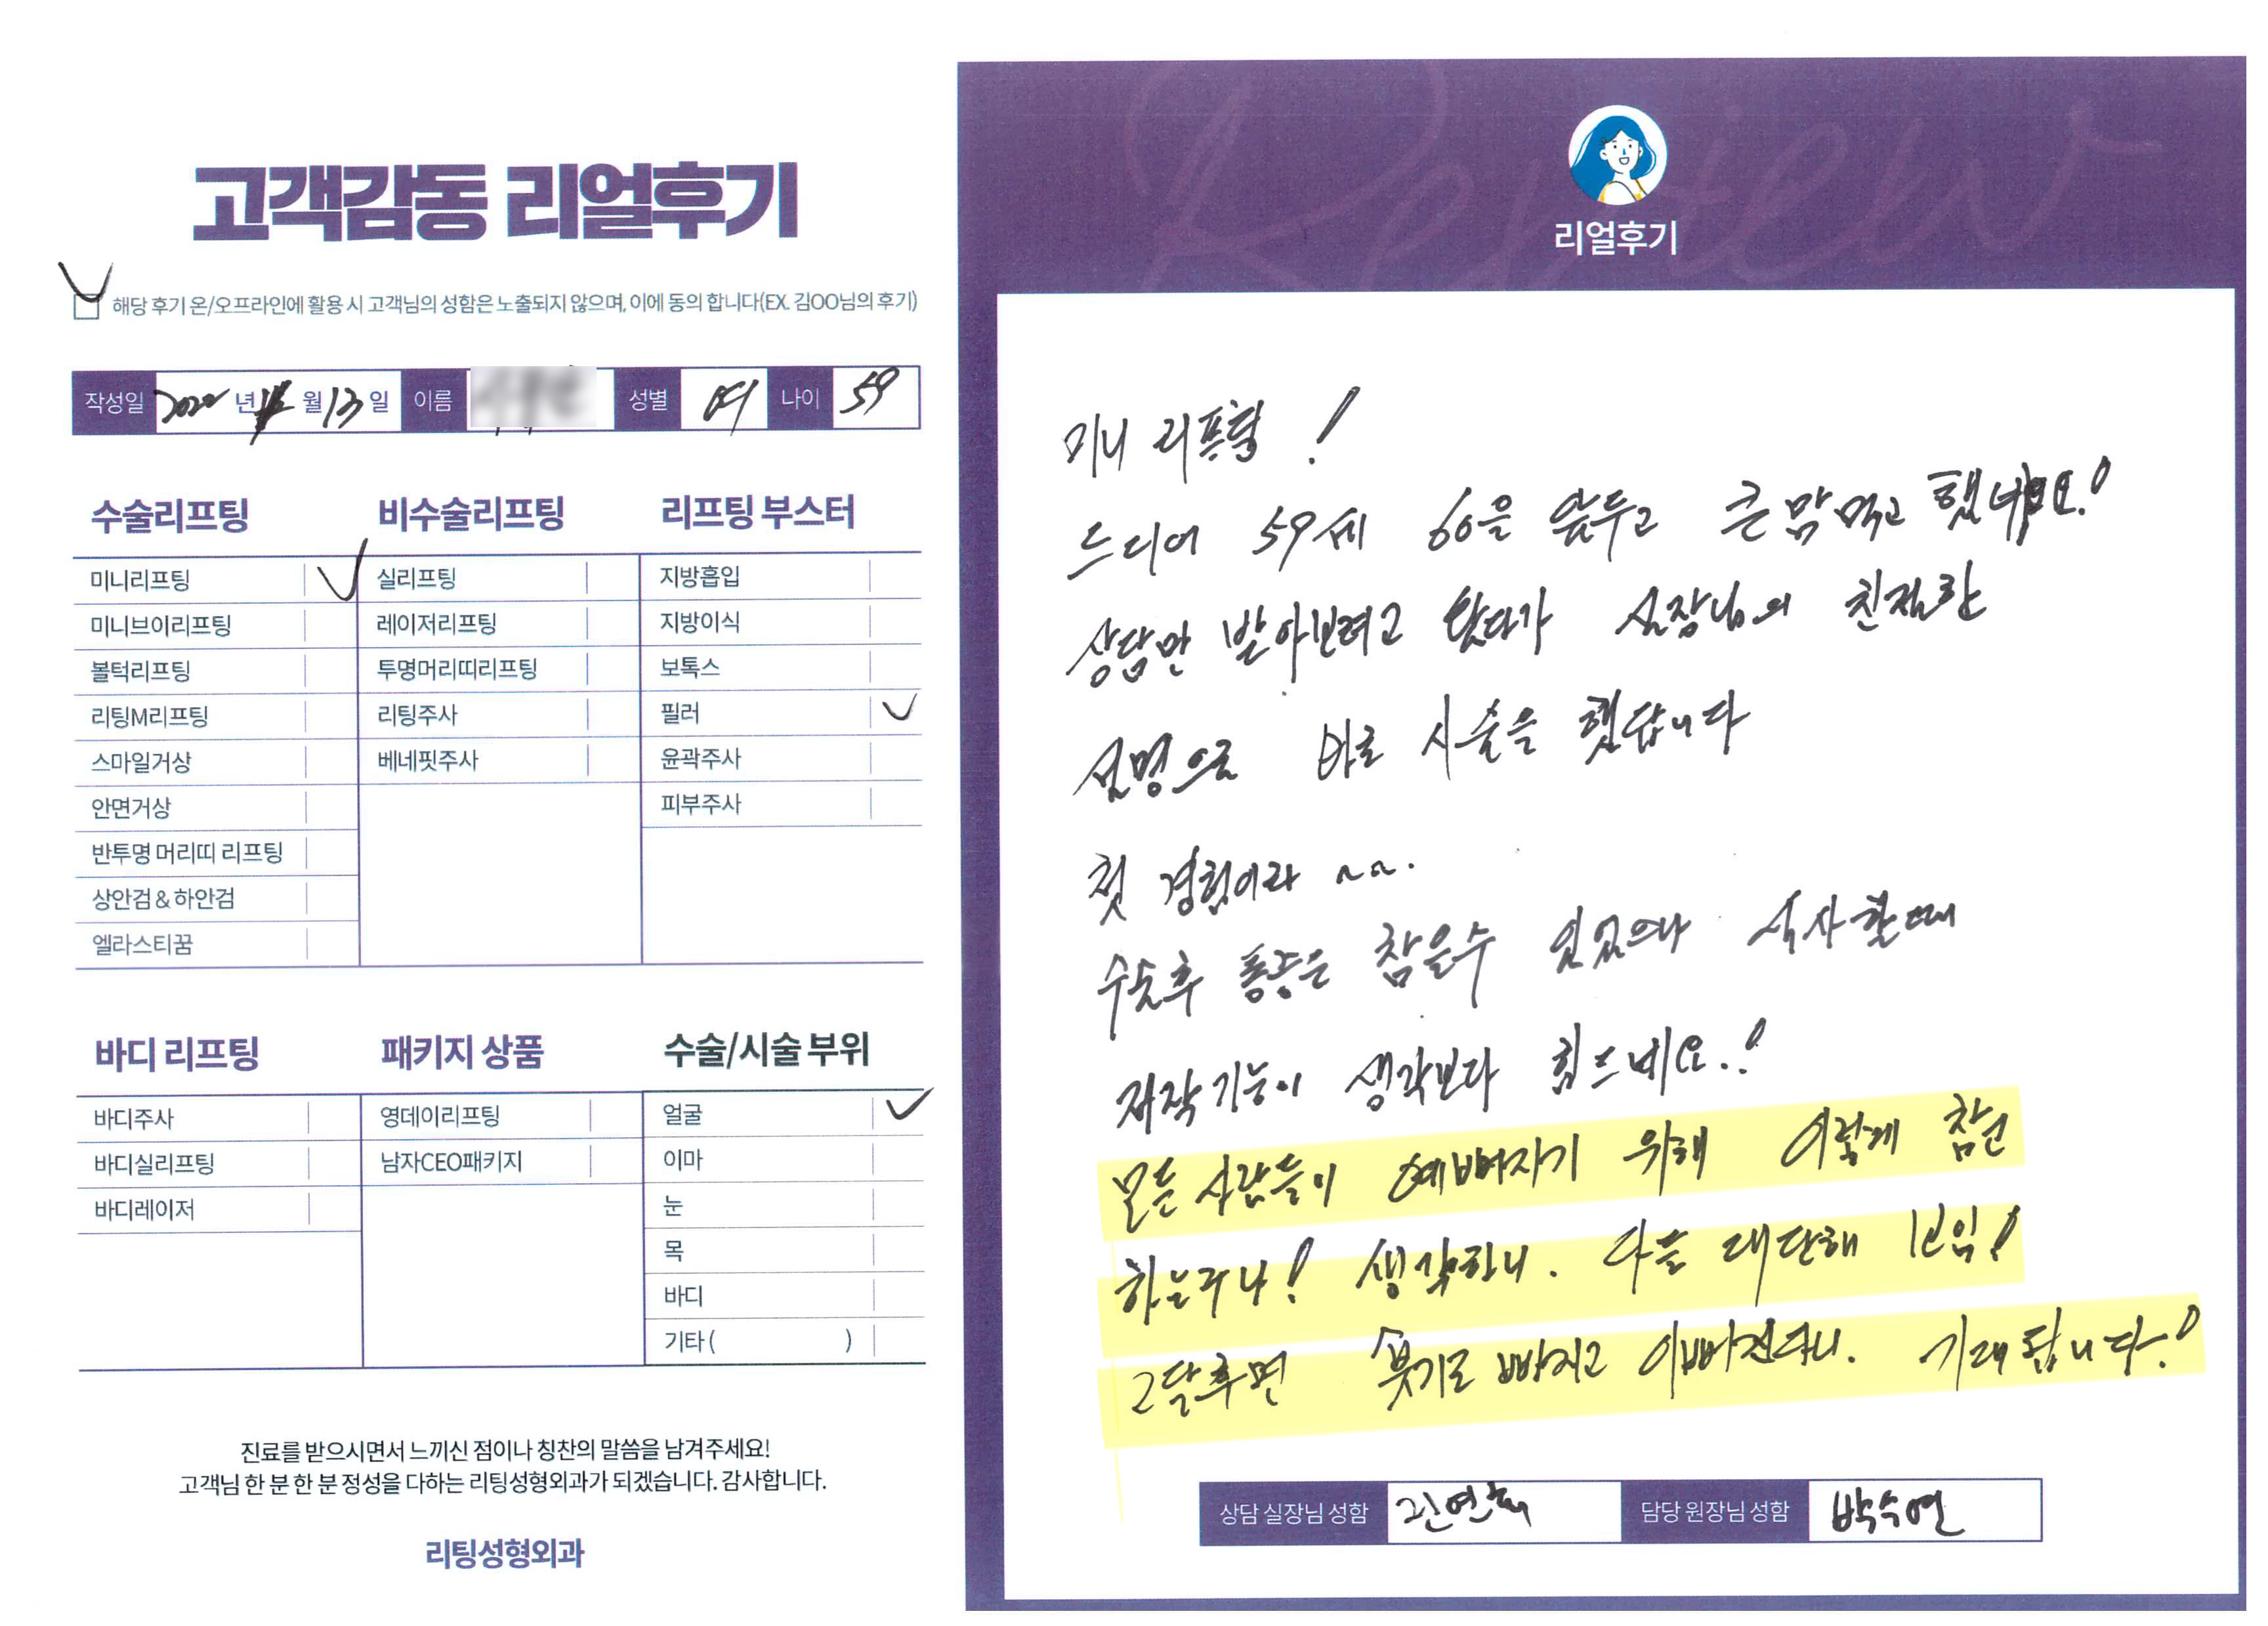 고객감동 리얼후기
해당 후기 온/오프라인에 활용 시 고객님의 성함은 노출되지 않으며, 이에 동의 합니다(EX. 김OO님의 후기)
작성일 2022 년 월 13 일 이름 성별 여 나이 59
수술리프팅
미니리프팅
미니브이리프팅
볼턱리프팅
리팅M리프팅
스마일거상
안면거상
반투명 머리띠 리프팅
상안검 & 하안검
엘라스티꿈
비수술리프팅
실리프팅
레이저리프팅
투명머리띠리프팅
리팅주사
베네핏주사
리프팅 부스터
지방흡입
지방이식
보톡스
필러
윤곽주사
피부주사
바디 리프팅
바디주사
바디실리프팅
바디레이저
패키지 상품
영데이리프팅
남자CEO패키지
수술/시술 부위
얼굴
이마
눈
목
바디
기타 ( )
진료를 받으시면서 느끼신 점이나 칭찬의 말씀을 남겨주세요!
고객님 한 분 한 분 정성을 다하는 리팅성형외과가 되겠습니다. 감사합니다.
리팅성형외과
Review
리얼후기
미니 리프팅 !
드디어 59세 60을 앞두고 큰 맘 먹고 했네요!
상담만 받아보려고 왔다가 실장님의 친절한
설명으로 바로 시술을 했답니다
첫 경험이라 ~~.
수술후 통증은 참을수 있었으나 식사할때
저작기능이 생각보다 힘드네요.!
모든 사람들이 예뻐지기 위해 이렇게 참
하는구나! 생각하니. 다들 대단해 보임!
2달후면 붓기도 빠지고 이뻐진다니. 기대됩니다.!
상담 실장님 성함
담당 원장님 성함 박수연